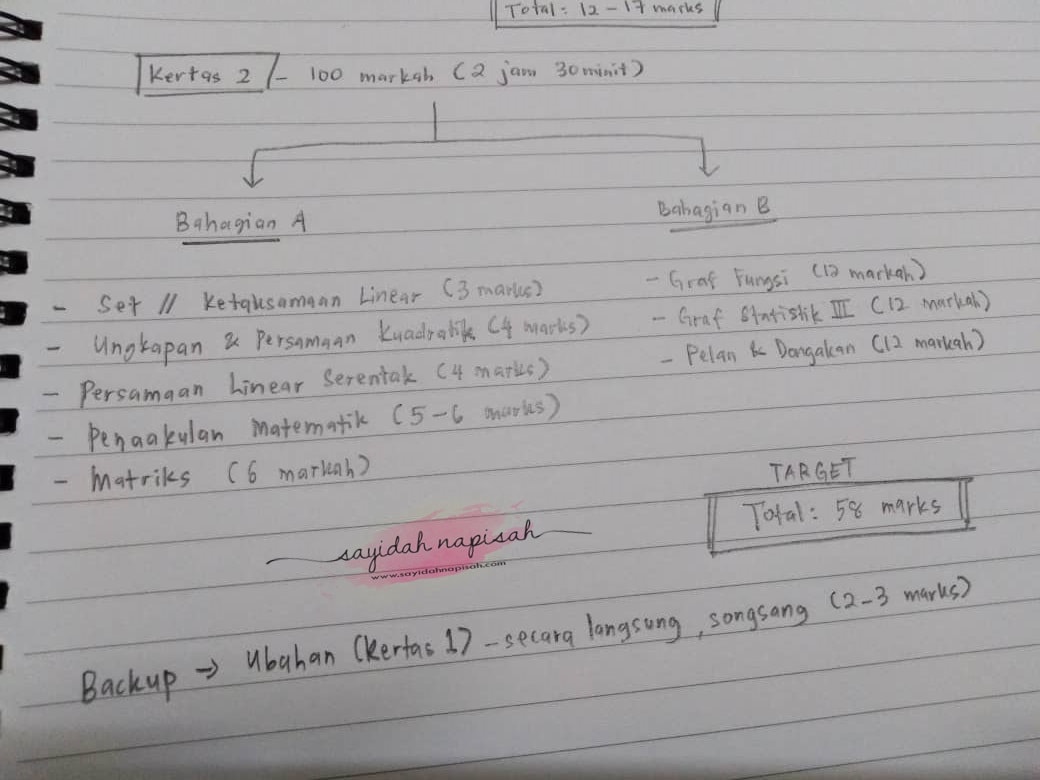 Total: 12 - 17 marks
Kertas 2 - 100 markah (2 jam 30 minit)
Bahagian A
- Set // Ketaksamaan Linear (3 marks)
- Ungkapan & Persamaan Kuadratik (4 marks)
- Persamaan Linear Serentak (4 marks)
- Penaakulan Matematik (5-6 marks)
- Matriks (6 markah)
Bahagian B
- Graf Fungsi (12 markah)
- Graf Statistik III (12 markah)
- Pelan & Dongakan (12 markah)
TARGET
Total: 58 marks
sayidah napisah
www.sayidahnapisah.com
Backup → Ubahan (Kertas 1) - secara langsung, songsang (2-3 marks)